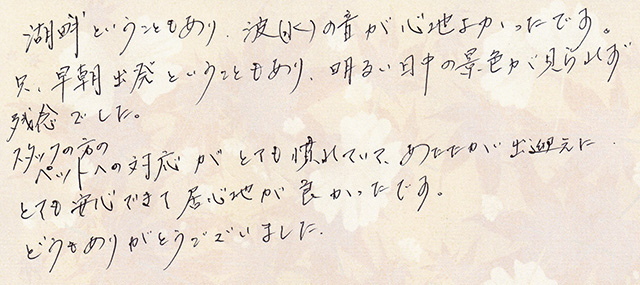 湖畔ということもあり、波(水)の音が心地よかったです。
只、早朝出発ということもあり、明るい日中の景色が見られず
残念でした。
スタッフの方の
ペットへの対応がとても慣れていて、あたたかい出迎えに
とても安心できて居心地が良かったです。
どうもありがとうございました。